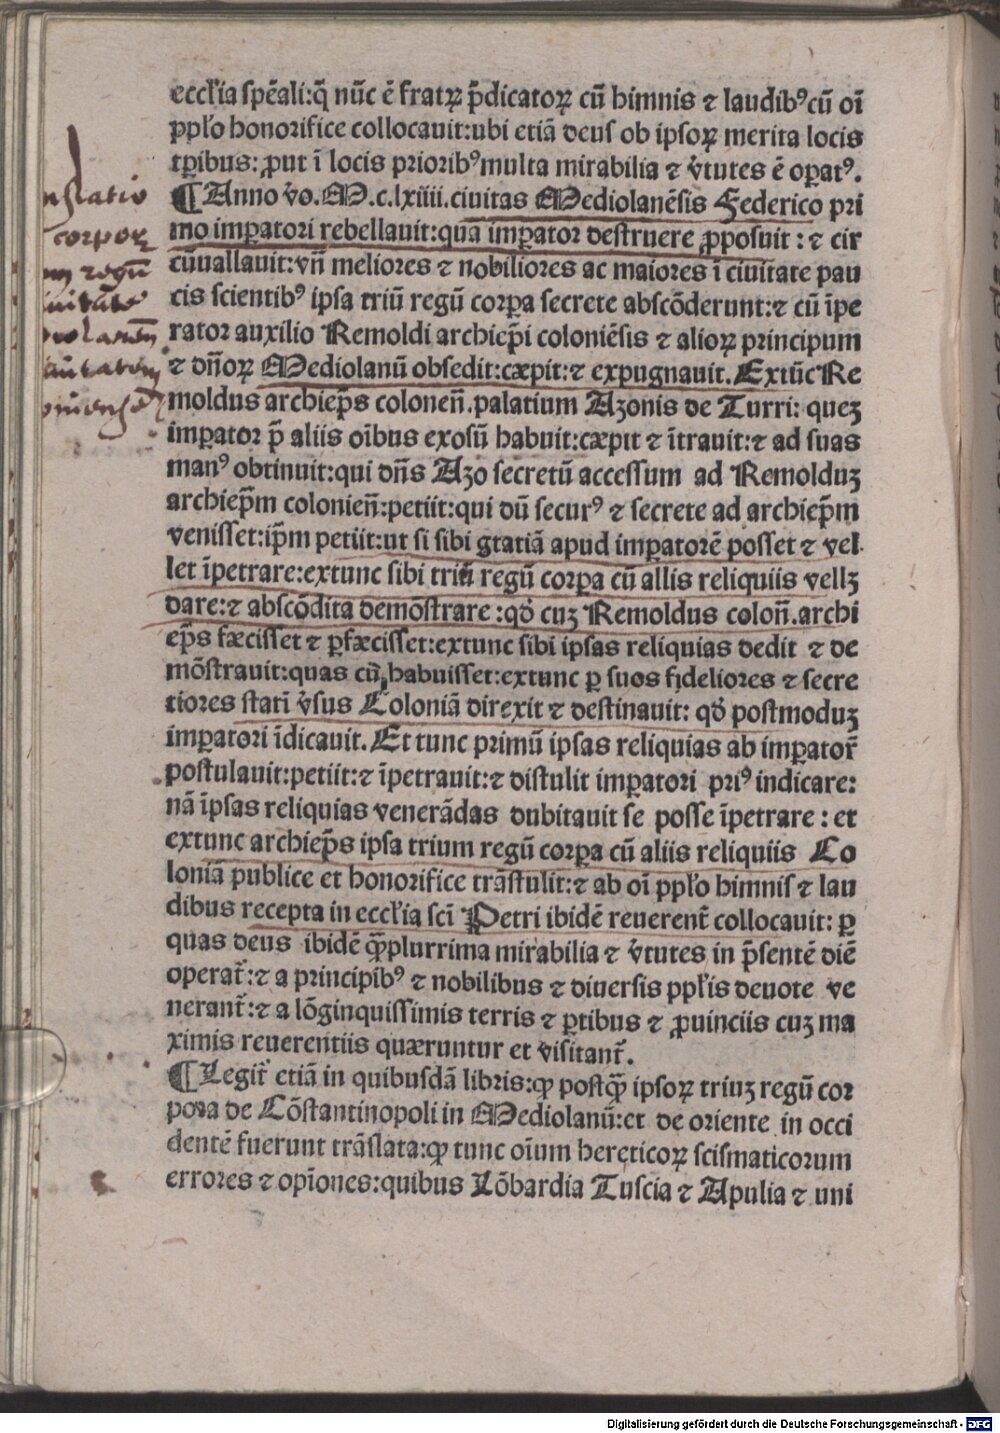 eccl̃ia spẽali:q̃ nũc ẽ fratꝝ p̃dicatoꝝ cũ himnis ⁊ laudibꝰcũ oĩ
ppl̃o honorifice collocauit:ubi etiã deus ob ipsoꝝ merita locis
tꝑibus: ꝓut ĩ locis prioribꝰmulta mirabilia ⁊ v̓tutes ẽ oꝑatꝰ.
¶Anno v̓o.M.c.lxiiii.ciuitas Mediolanẽsis Federico pri
mo imꝑatori rebellauit:quã imꝑator destruere ꝓposuit : ⁊ cir
cũuallauit:vñ meliores ⁊ nobiliores ac maiores ĩ ciuitate pau
cis scientibꝰ ipsa triũ regũ corꝑa secrete abscõderunt:⁊ cũ ĩpe
rator auxilio Remoldi archiep̃i coloniẽsis ⁊ alioꝝ principum
⁊ dñoꝝ Mediolanũ obsedit:cæpit:⁊ expugnauit. Extũc Re
moldus archiep̃s coloneñ.palatium Azonis de Turri: queꝫ
imꝑator p̃ aliis oĩbus exosũ habuit:cæpit ⁊ ĩtrauit:⁊ ad suas
manꝰ obtinuit:qui dñs Azo secretũ accessum ad Remolduꝫ
archiep̃m colonieñ:petiit:qui dũ securꝰ ⁊ secrete ad archiep̃m
venisset:ip̃m petiit:ut si sibi gtatiã apud imꝑatorẽ posset ⁊ vel
let ĩpetrare:extunc sibi triũ regũ corꝑa cũ allis reliquiis vellꝫ
dare:⁊ abscõdita demõstrare :qd̓ cuꝫ Remoldus coloñ.archi
ep̃s fæcisset ⁊ ꝑfæcisset:extunc sibi ipsas reliquias dedit ⁊ de
mõstrauit:quas cũ habuisset:extunc ꝑ suos fideliores ⁊ secre
tiores statĩ v̓sus Coloniã direxit ⁊ destinauit: qd̓ postmoduꝫ
imꝑatori ĩdicauit. Et tunc primũ ipsas reliquias ab imꝑator̃
postulauit:petiit:⁊ ĩpetrauit:⁊ distulit imꝑatori priꝰ indicare:
nã ĩpsas reliquias venerãdas dubitauit se posse ĩpetrare : et
extunc archiep̃s ipsa trium regũ corꝑa cũ aliis reliquiis Co
loniã publice et honorifice trãstulit:⁊ ab oĩ ppl̃o himnis ⁊ lau
dibus recepta in eccl̃ia sci̅ Petri ibidẽ reuerent̃ collocauit: ꝑ
quas deus ibidẽ qͣ̃plurrima mirabilia ⁊ v̓tutes in p̃sentẽ diẽ
operat̃:⁊ a principibꝰ ⁊ nobilibus ⁊ diuersis ppl̃is deuote ve
nerant̃:⁊ a lõginquissimis terris ⁊ ꝑtibus ⁊ ꝓuinciis cuꝫ ma
ximis reuerentiis quæruntur et visitant̃.
¶Legit̃ etiã in quibusdã libris:ꝙ postqͣ̃ ipsoꝝ triuꝫ regũ cor
pora de Cõstantinopoli in Mediolanũ:et de oriente in occi
dentẽ fuerunt trãslata:ꝙ tunc oĩum hereticoꝝ scismaticorum
errores ⁊ opĩones:quibus Lõbardia Tuscia ⁊ Apulia ⁊ uni
nslatio
corpoꝝ
regũ
Digitalisierung gefördert durch die Deutsche Forschungsgemeinschaft - DFG